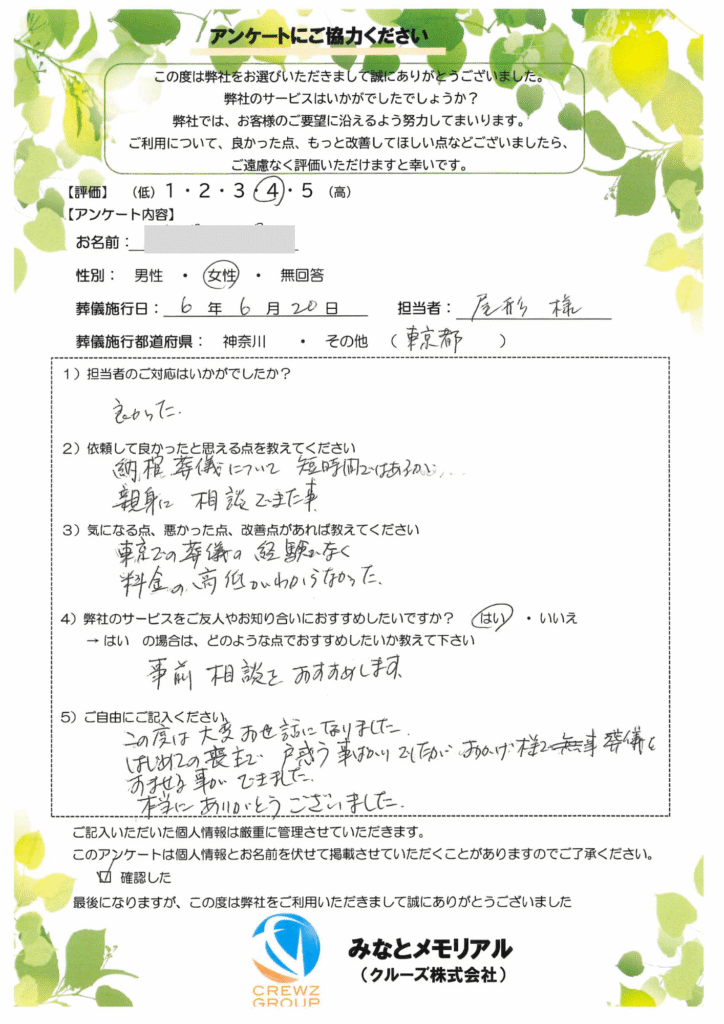 アンケートにご協力ください
この度は弊社をお選びいただきまして誠にありがとうございました。
弊社のサービスはいかがでしたでしょうか？
弊社では、お客様のご要望に沿えるよう努力してまいります。
ご利用について、良かった点、もっと改善してほしい点などございましたら、
ご遠慮なく評価いただけますと幸いです。
【評価】 （低）1・2・3・4・5（高）
【アンケート内容】
お名前：
性別： 男性 ・ 女性 ・ 無回答
葬儀施行日： 6 年 6 月 20 日 担当者： 尾形 様
葬儀施行都道府県： 神奈川 ・ その他 （ 東京都 ）
1）担当者のご対応はいかがでしたか？
良かった.
2）依頼して良かったと思える点を教えてください
納棺葬儀について 短時間ではあるが、...
親身に 相談できた事
3）気になる点、悪かった点、改善点があれば教えてください
東京での葬儀の経験がなく
料金の高低がわからなかった.
4）弊社のサービスをご友人やお知り合いにおすすめしたいですか？ はい ・いいえ
→ はい の場合は、どのような点でおすすめしたいか教えて下さい
事前 相談を おすすめします
5）ご自由にご記入ください。
この度は大変お世話になりました.
はじめての喪主で 戸惑う事ばかりでしたが おかげ様で無事葬儀を
おませる事ができました.
本当にありがとうございました.
ご記入いただいた個人情報は厳重に管理させていただきます。
このアンケートは個人情報とお名前を伏せて掲載させていただくことがありますのでご了承ください。
確認した
最後になりますが、この度は弊社をご利用いただきまして誠にありがとうございました
みなとメモリアル
（クルーズ株式会社）
CREWZ
GROUP